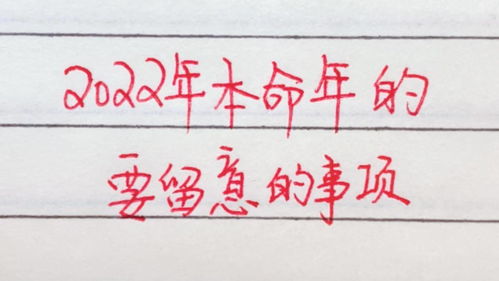 2022年本命年的
要留意的事项